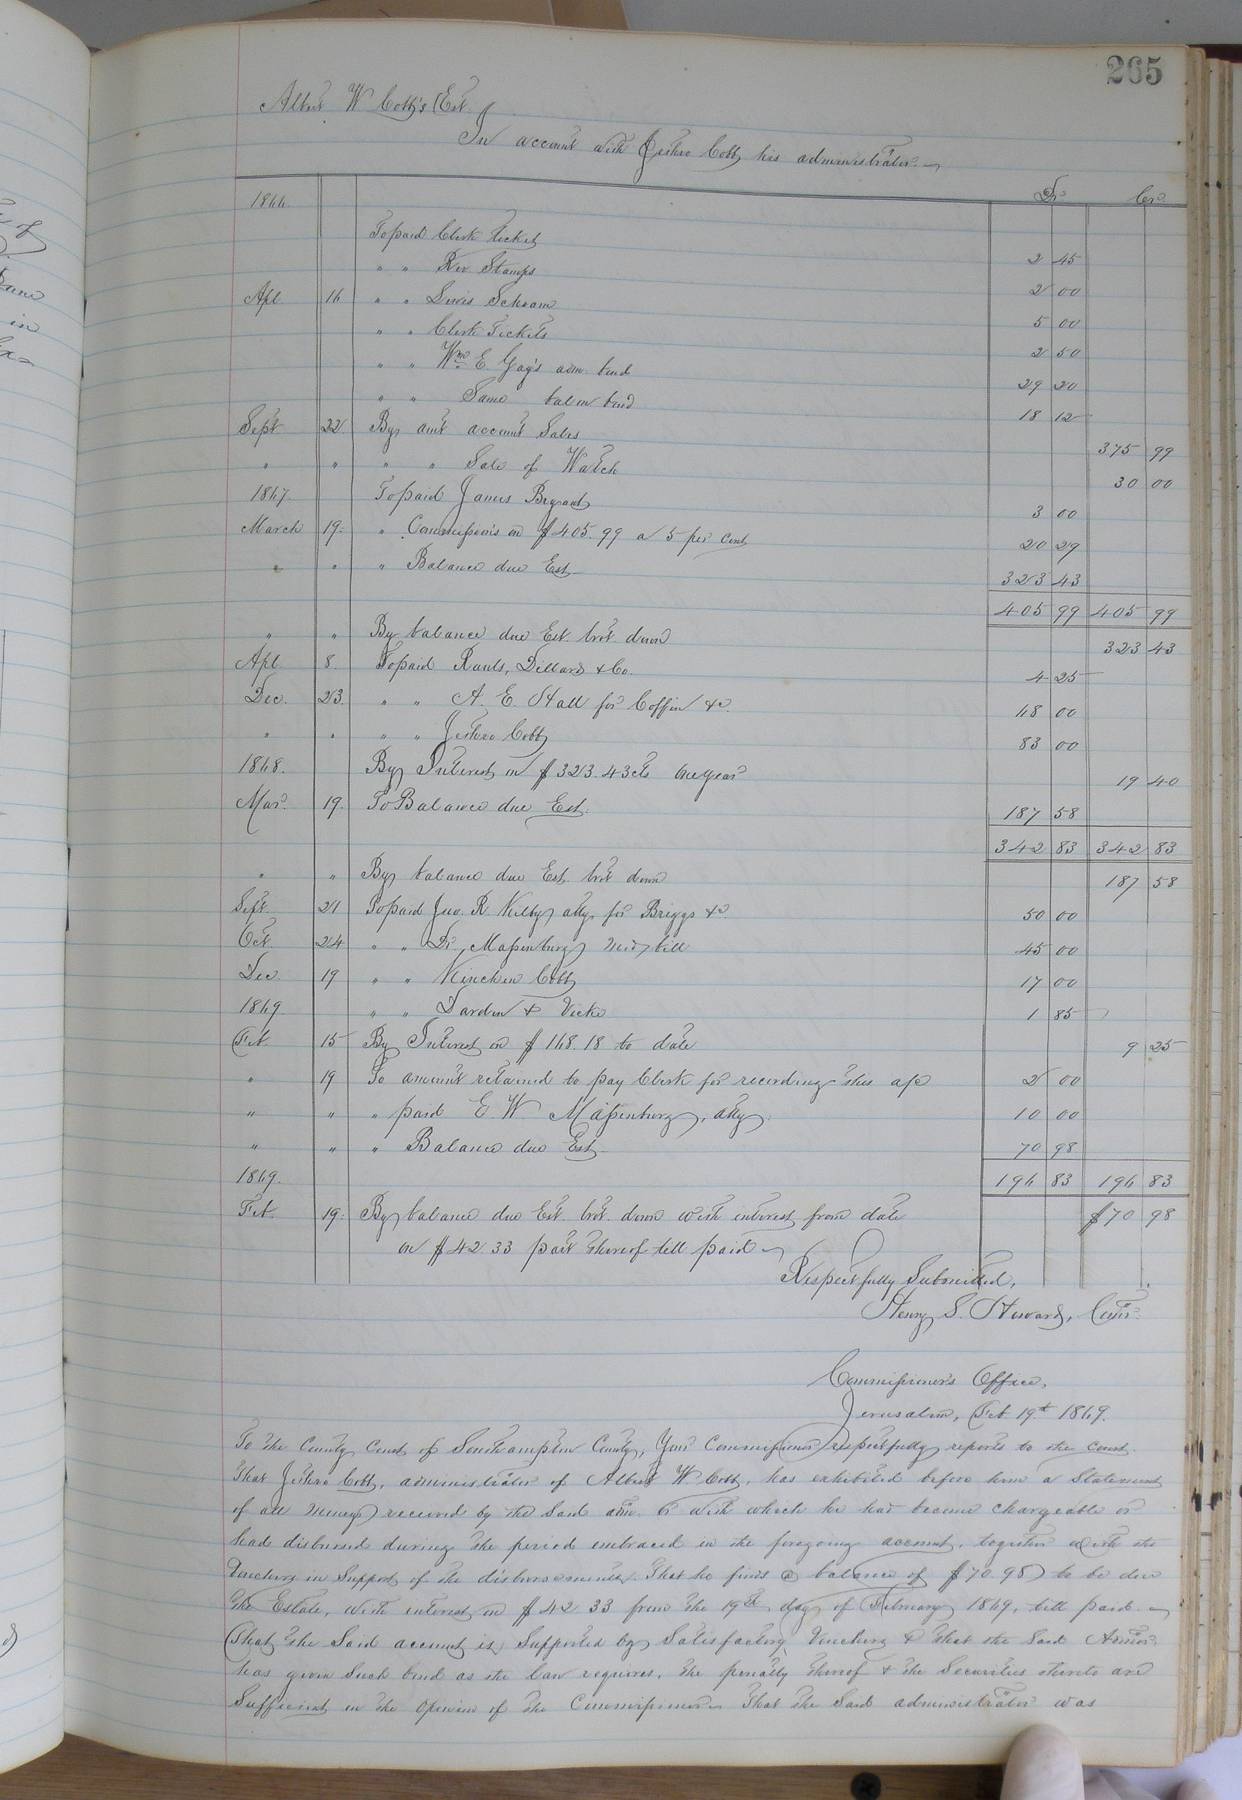 265
Albert W Cobb's Est.
In account with Jethro Cobb his administrator.
Dr. Cr.
1866
To paid Clerk Ticket 2 45
" " Rev Stamps 2 00
Apl 16 " " Lewis Schram 5 00
" " Clerk Tickets 2 50
" " Wm. E. Gay's adm. bond 29 20
" " Same bal on bond 18 12
Sept 22 By amt account Sales 375 99
" " " " Sale of Watch 30 00
1867 To paid James Bryant 3 00
March 19 " Commissions on $405.99 a 5 per cent 20 29
" " " Balance due Est 323 43
405 99 405 99
" " By balance due Est. brot. down 323 43
Apl 8 To paid Rawls, Dillard & Co. 4 25
Dec. 23 " " A. E. Hall for Coffin &c. 68 00
" " " " Jethro Cobb 83 00
1868. By Interest on $323.43cts one year 19 40
Mar. 19. To Balance due Est. 187 58
342 83 342 83
" " By balance due Est. brot down 187 58
Sept. 21 To paid Jno. R Kilby atty. for Briggs &c 50 00
Oct. 24 " " Dr. Massenburg med. bill 45 00
Dec 19 " " Kinchen Cobb 17 00
1869 " " Darden & Vicks 1 85
Feb. 15 By Interest on $168.18 to date 9 25
" 19 To amount retained to pay Clerk for recording this a/c 2 00
" " " paid E. W Massenburg, atty. 10 00
" " " Balance due Est 70 98
1869. 196 83 196 83
Feb. 19. By balance due Est. brot. down with interest from date $70 98
on $42 33 part thereof till paid
Respectfully Submitted,
Henry S. Howard, Comr.
Commissioner's Office,
Jerusalem, Feb 19th 1869.
To the County Court of Southampton County, Your Commissioner respectfully reports to the court
That Jethro Cobb, administrator of Albert W. Cobb, has exhibited before him a Statement
of all moneys received by the said adm. or with which he had become chargeable or
had disbursed during the period embraced in the foregoing account, together with the
Vouchers in Support of the disbursements. That he finds a balance of $70 98 to be due
the Estate, with interest on $42 33 from the 19th day of February 1869, till paid
That the Said account is Supported by Satisfactory Vouchers & that the Said Admor.
has given Such bond as the law requires, the penalty thereof & the Securities thereto are
Sufficient in the opinion of the Commissioner That the Said administrator was